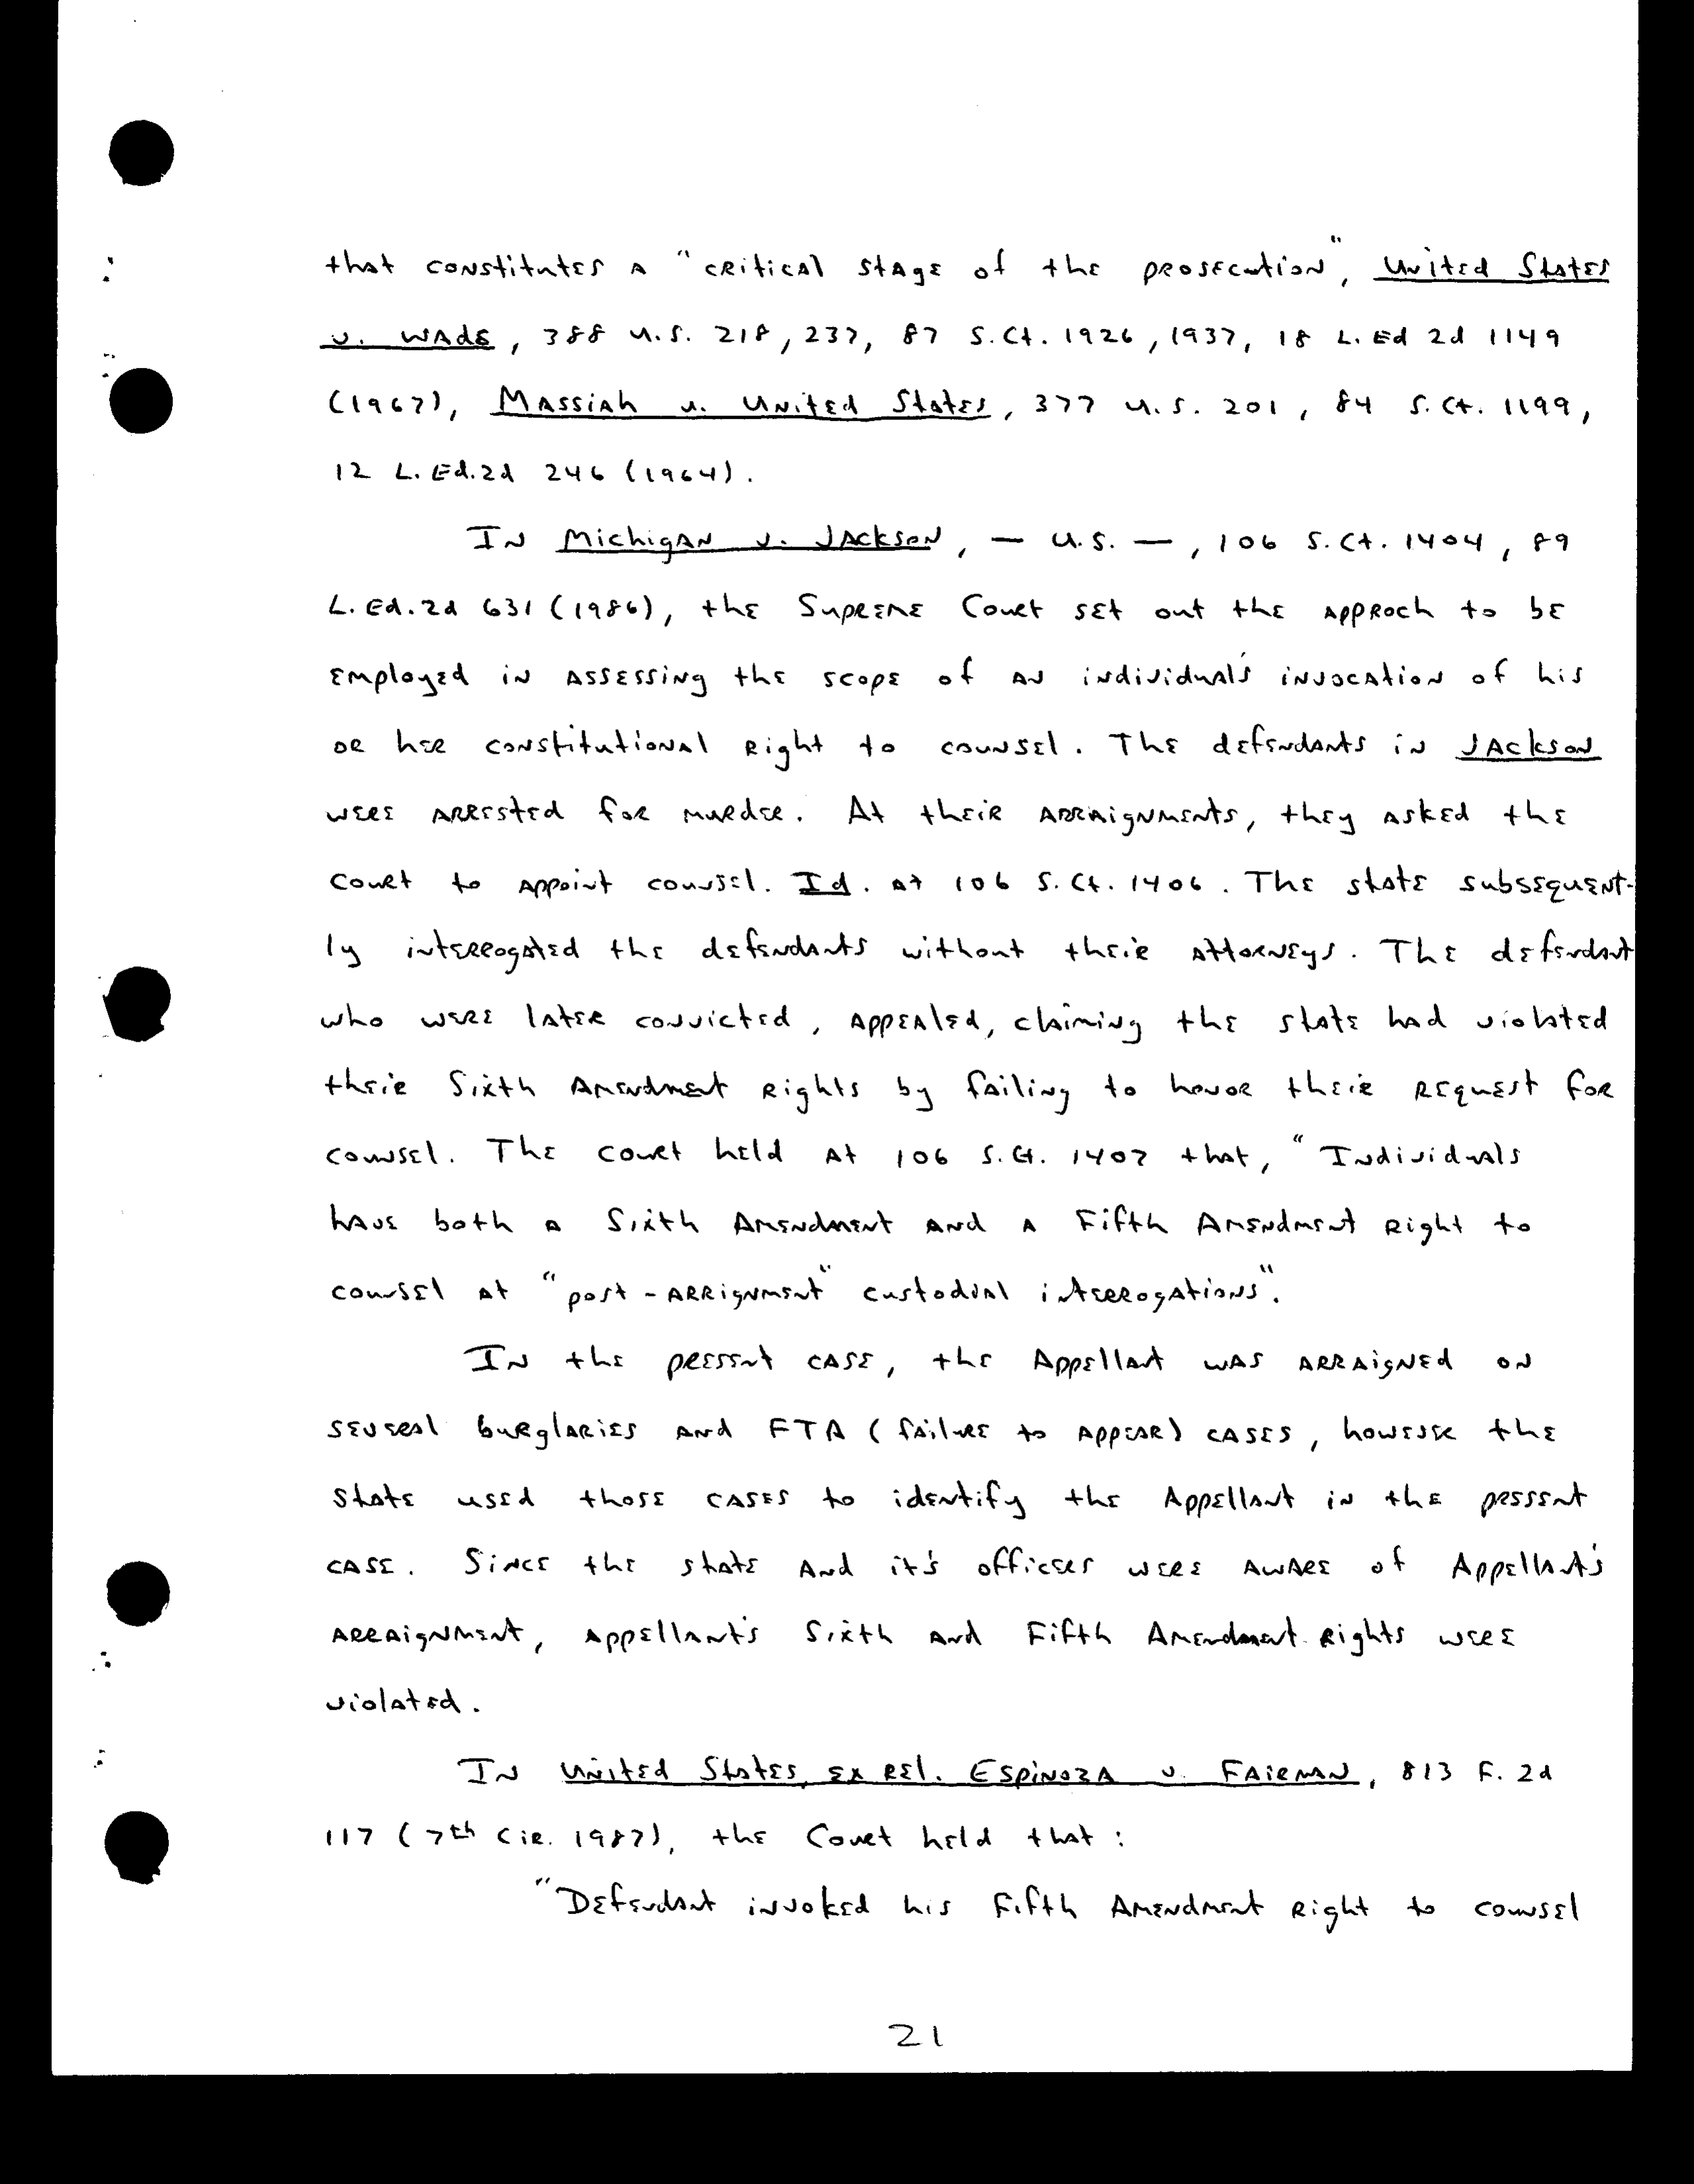 that constitutes a "critical stage of the prosecution", United States
v. Wade, 388 U.S. 218, 237, 87 S.Ct. 1926, 1937, 18 L. Ed 2d 1149
(1967), Massiah v. United States, 377 U.S. 201, 84 S.Ct. 1199,
12 L. Ed.2d 246 (1964).
In Michigan v. Jackson, — U.S. —, 106 S.Ct. 1404, 89
L. Ed.2d 631 (1986), the Supreme Court set out the approch to be
employed in assessing the scope of an individual's invocation of his
or her constitutional right to counsel. The defendants in Jackson
were arrested for murder. At their arraignments, they asked the
court to appoint counsel. Id. at 106 S.Ct. 1406. The state subsequent-
ly interrogated the defendants without their attorneys. The defendant
who were later convicted, appealed, claiming the state had violated
their Sixth Amendment rights by failing to honor their request for
counsel. The court held at 106 S.Ct. 1407 that, "Individuals
have both a Sixth Amendment and a Fifth Amendment right to
counsel at "post-arrignment" custodial interrogations".
In the present case, the Appellant was arraigned on
several burglaries and FTA (failure to appear) cases, however the
state used those cases to identify the Appellant in the present
case. Since the state and it's officers were aware of Appellant's
arraignment, appellant's Sixth and Fifth Amendment rights were
violated.
In United States, ex rel. Espinoza v. Fairman, 813 F. 2d
117 (7th Cir. 1987), the Court held that:
"Defendant invoked his Fifth Amendment right to counsel
21